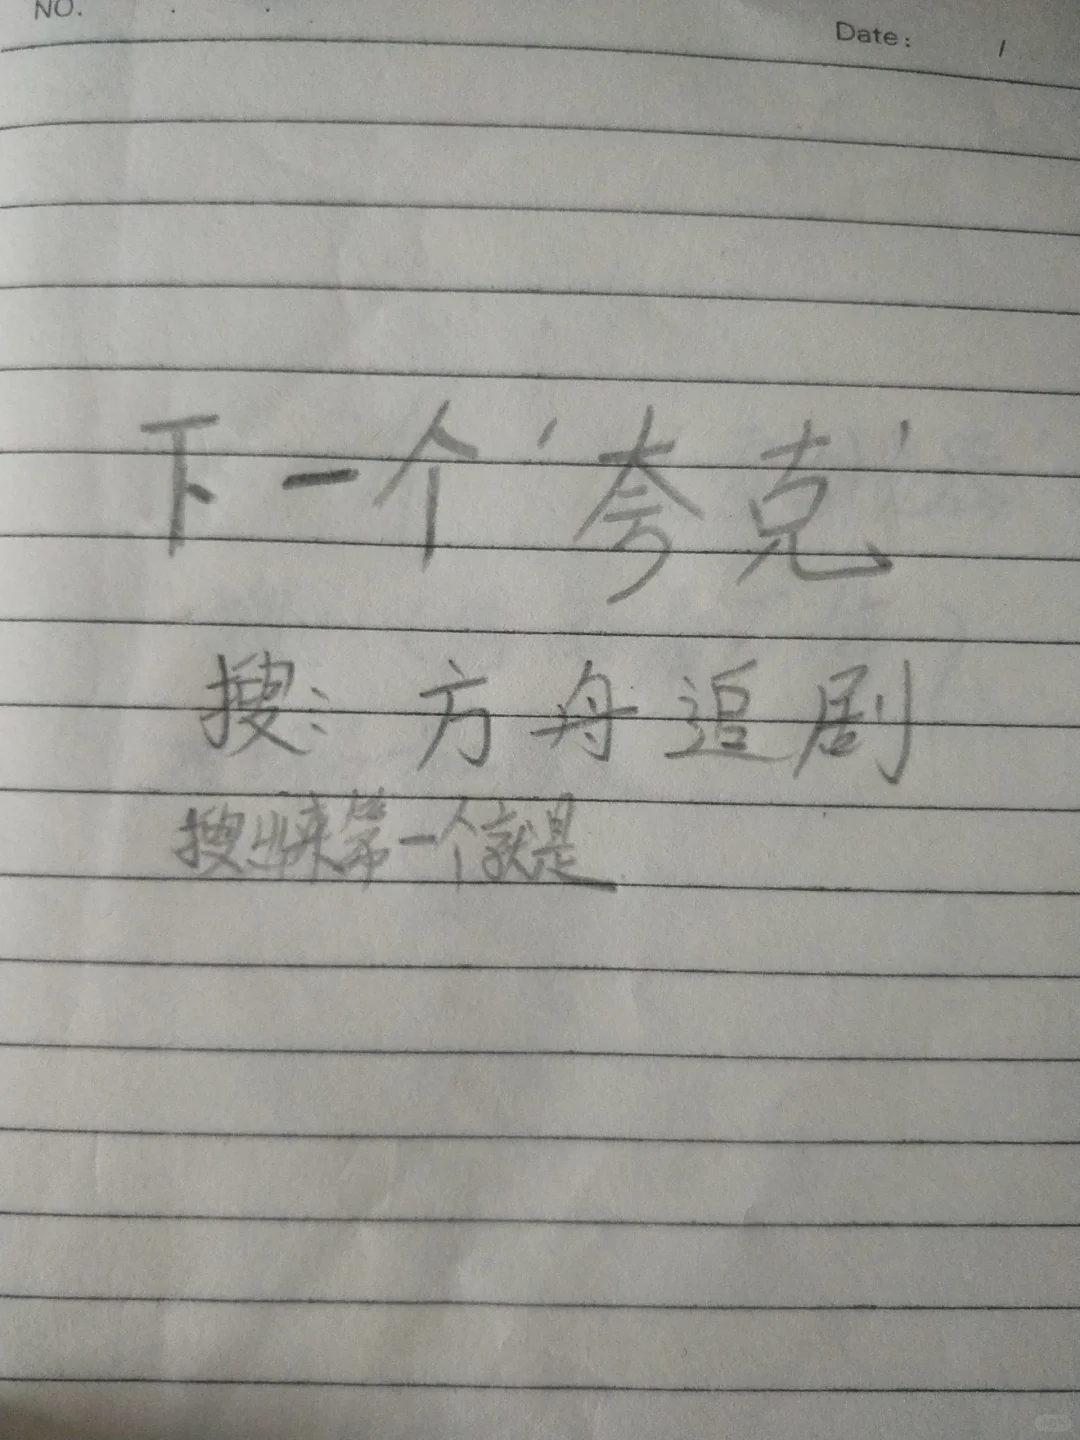 NO.
Date: /
下一个‘夸克’
搜: 方舟追剧
搜出来第一个就是